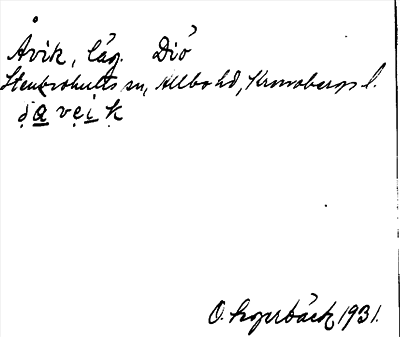 Åvik, läg. Diö
Stenbrohults sn, Allbo hd, Kronobergs l.
O. Lagerbäck 1931.